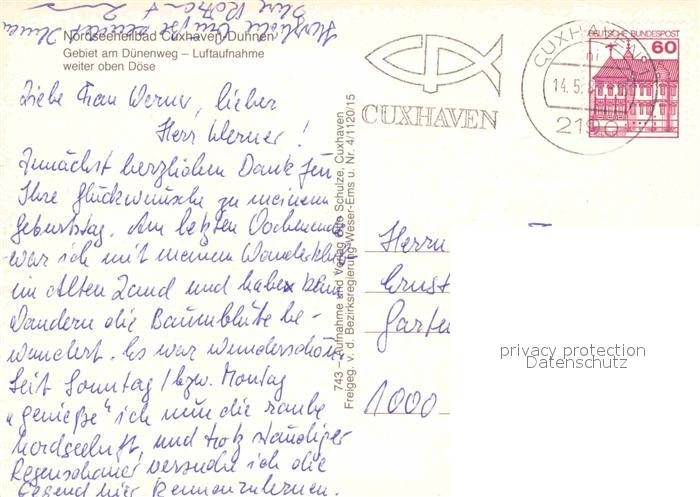 Herzliche Grüße sendet Ihnen
Ihre
Nordseeheilbad Cuxhaven Duhnen
Gebiet am Dünenweg – Luftaufnahme
weiter oben Döse
Liebe Frau Werner, lieber
Herr Werner!
Zunächst herzlichen Dank für
Ihre Glückwünsche zu meinem
Geburtstag. Am letzten Wochenende
war ich mit meinem Wanderklub
im Alten Land und haben beim
Wandern die Baumblüte be-
wundert. Es war wunderschön.
Seit Sonntag / bzw. Montag
„genieße" ich nun die rauhe
Nordseeluft, und trotz ständiger
Regenschauer versuche ich die
Gegend hier kennenzulernen.
743 – Aufnahme und Verlag Otto Schulze, Cuxhaven
Freigeg. v. d. Bezirksregierung Weser-Ems u. Nr. 4/1120/15
CUXHAVEN
CUXHAVEN
14.5.
2190
DEUTSCHE BUNDESPOST
60
Herrn
Ernst
Garte
1000
privacy protection
Datenschutz